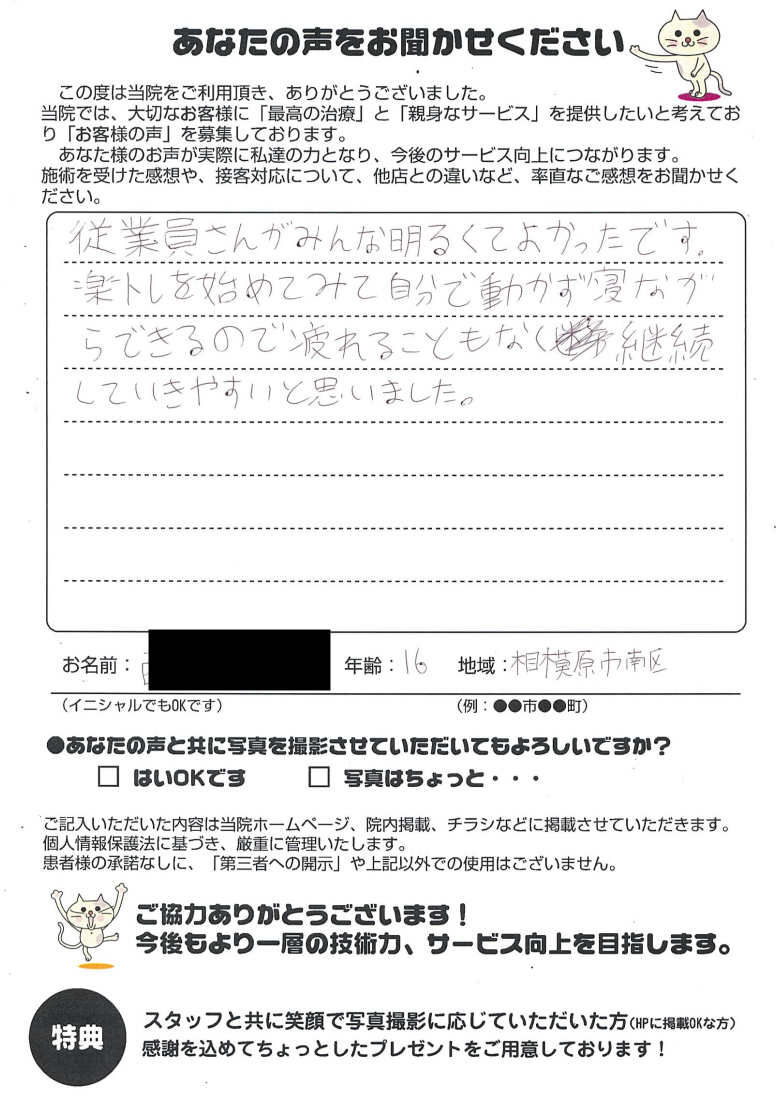 あなたの声をお聞かせください
この度は当院をご利用頂き、ありがとうございました。
当院では、大切なお客様に「最高の治療」と「親身なサービス」を提供したいと考えてお
り「お客様の声」を募集しております。
あなた様のお声が実際に私達の力となり、今後のサービス向上につながります。
施術を受けた感想や、接客対応について、他店との違いなど、率直なご感想をお聞かせく
ださい。
従業員さんがみんな明るくてよかったです。
楽トレを始めてみて自分で動かず寝なが
らできるので疲れることもなく継続
していきやすいと思いました。
お名前： 年齢：16 地域：相模原市南区
（イニシャルでもOKです） （例：●●市●●町）
●あなたの声と共に写真を撮影させていただいてもよろしいですか？
□ はいOKです □ 写真はちょっと・・・
ご記入いただいた内容は当院ホームページ、院内掲載、チラシなどに掲載させていただきます。
個人情報保護法に基づき、厳重に管理いたします。
患者様の承諾なしに、「第三者への開示」や上記以外での使用はございません。
ご協力ありがとうございます！
今後もより一層の技術力、サービス向上を目指します。
特典
スタッフと共に笑顔で写真撮影に応じていただいた方（HPに掲載OKな方）
感謝を込めてちょっとしたプレゼントをご用意しております！